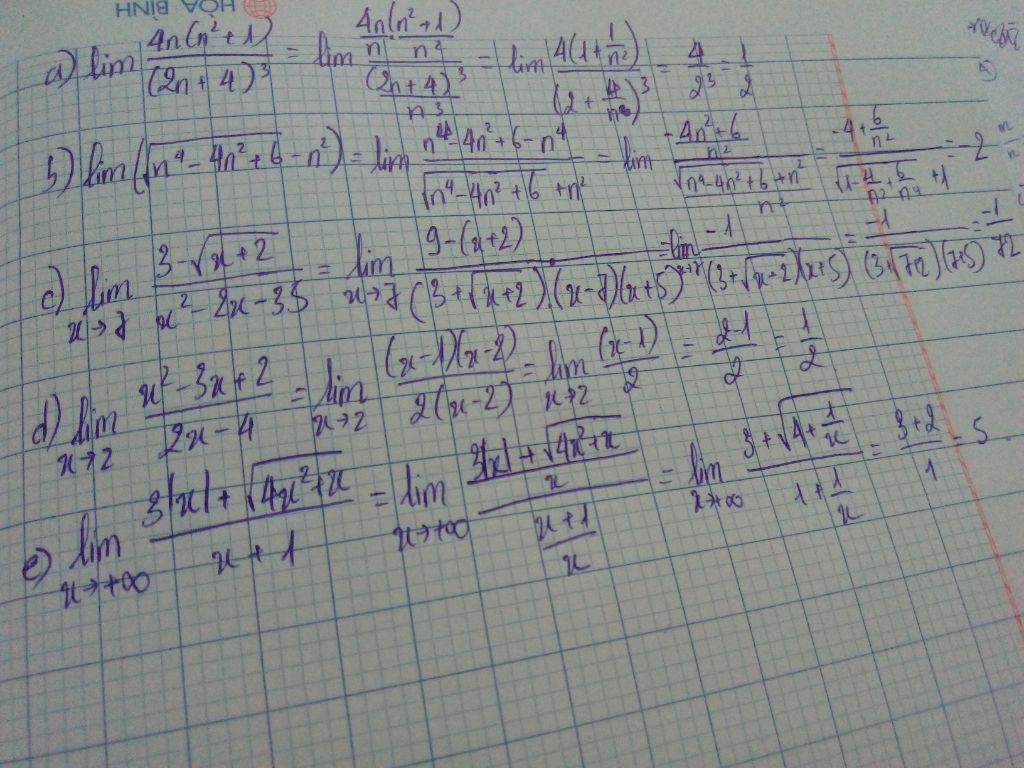 HÒA BÌNH
a) lim 4n(n²+1)/(2n+4)³ = lim (4n/n · (n²+1)/n²)/((2n+4)³/n³) = lim 4(1+1/n²)/(2+4/n)³ = 4/2³ = 1/2
b) lim(√(n⁴-4n²+6) - n²) = lim (n⁴-4n²+6-n⁴)/(√(n⁴-4n²+6) + n²) = lim ((-4n²+6)/n²)/((√(n⁴-4n²+6) + n²)/n²) = (-4+6/n²)/(√(1-4/n²+6/n⁴) + 1) = -2
c) lim x→7 (3-√(x+2))/(x²-2x-35) = lim x→7 (9-(x+2))/((3+√(x+2)).(x-7)(x+5)) = lim x→7 -1/((3+√(x-2))(x+5)) = -1/((3+√(7+2))(7+5)) = -1/72
d) lim x→2 (x²-3x+2)/(2x-4) = lim x→2 (x-1)(x-2)/(2(x-2)) = lim x→2 (x-1)/2 = (2-1)/2 = 1/2
e) lim x→+∞ (3|x|+√(4x²+x))/(x+1) = lim x→+∞ ((3|x|+√(4x²+x))/x)/((x+1)/x) = lim x→+∞ (3+√(4+1/x))/(1+1/x) = (3+2)/1 = 5